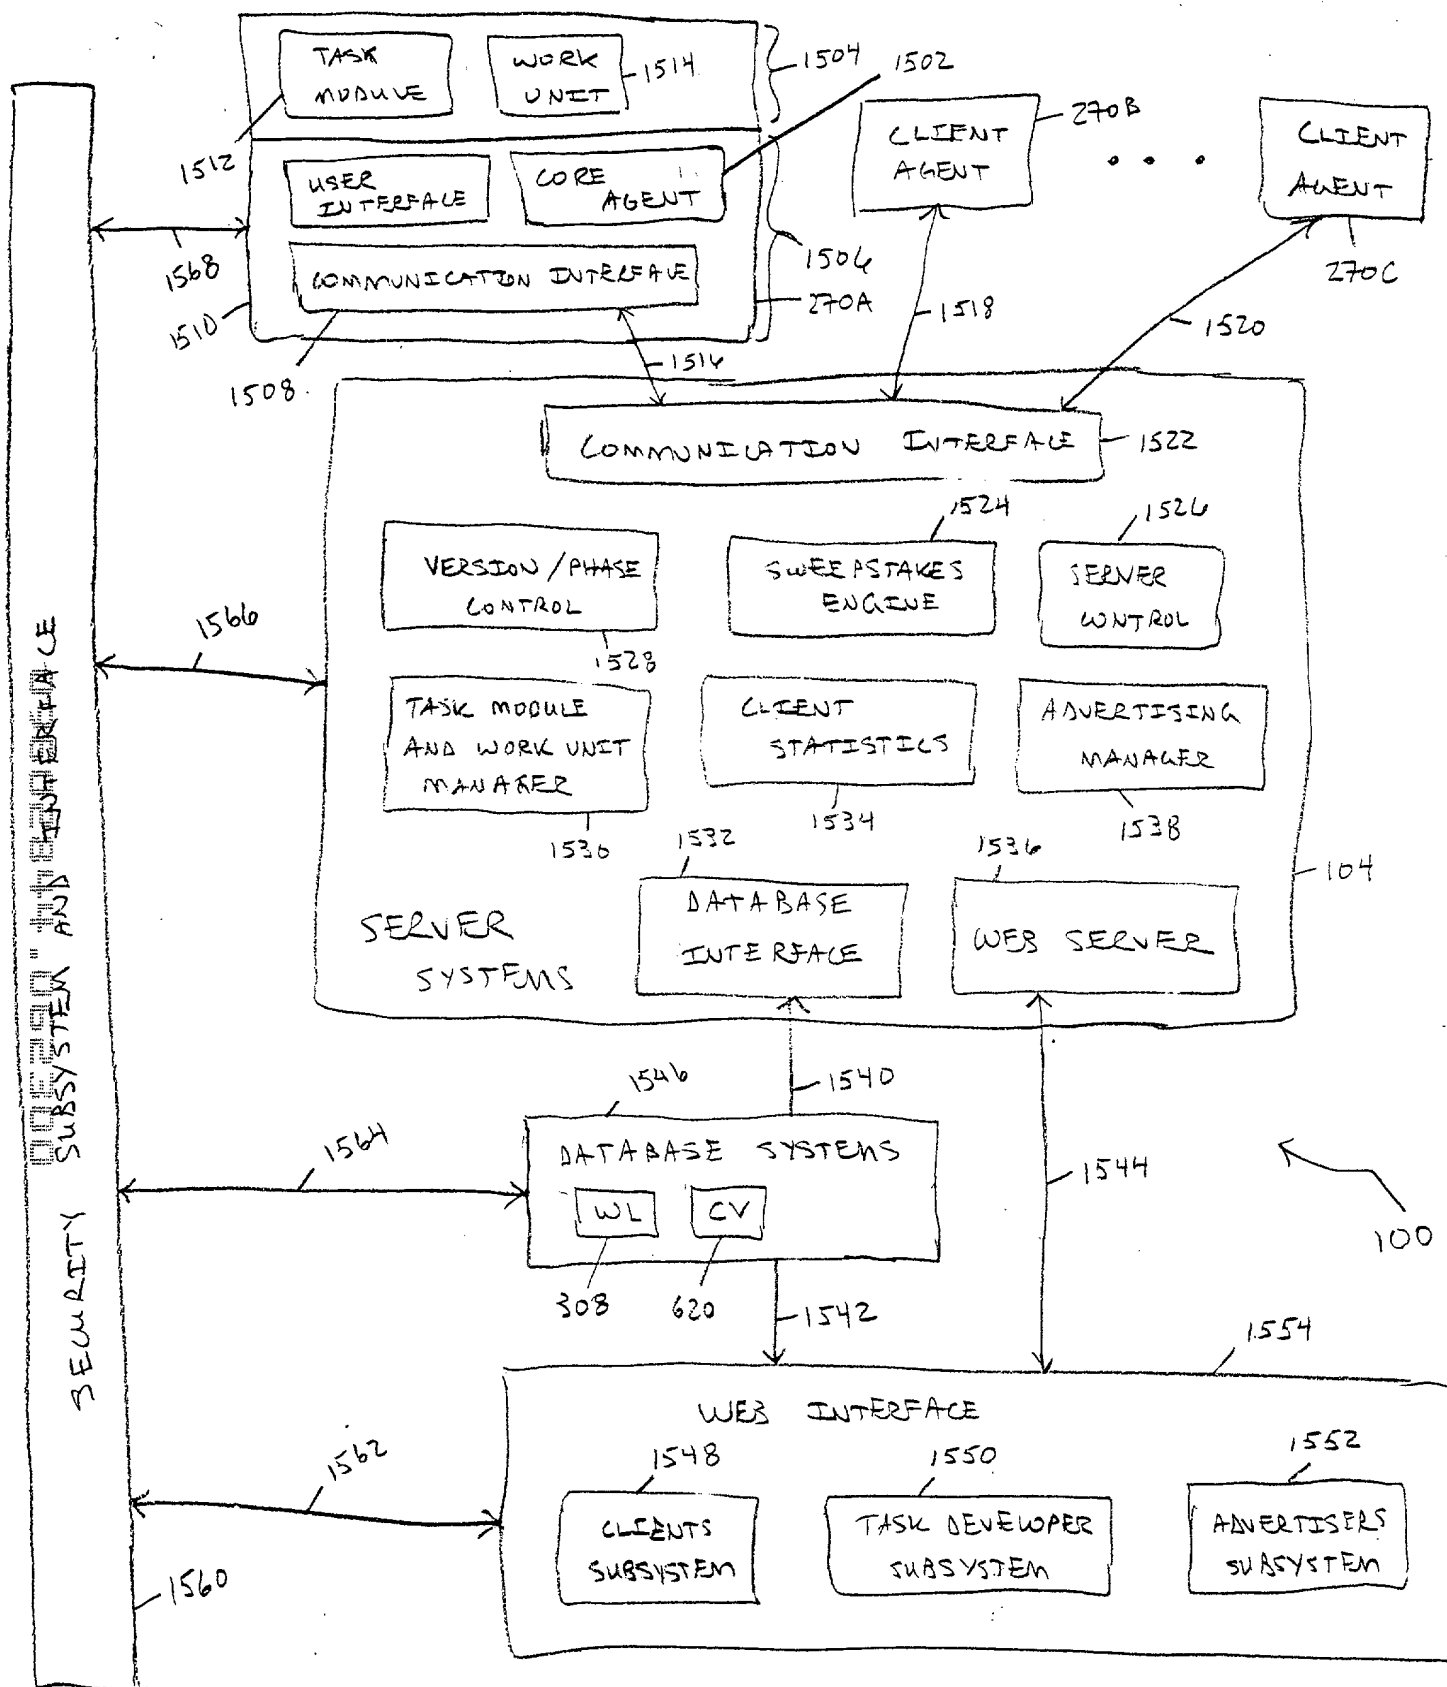 TASK
MODULE
WORK
UNIT
1514
1504
1502
1512
USER
INTERFACE
CORE
AGENT
CLIENT
AGENT
270B
. . .
CLIENT
AGENT
270C
1568
COMMUNICATION INTERFACE
1506
270A
1510
1508
1516
1518
1520
COMMUNICATION INTERFACE
1522
1524
1526
VERSION/PHASE
CONTROL
SWEEPSTAKES
ENGINE
SERVER
CONTROL
1566
1528
TASK MODULE
AND WORK UNIT
MANAGER
CLIENT
STATISTICS
ADVERTISING
MANAGER
1530
1532
1534
1536
1538
104
SERVER
SYSTEMS
DATABASE
INTERFACE
WEB SERVER
SECURITY SUBSYSTEM AND INTERFACE
1546
1540
1564
DATABASE SYSTEMS
WL
CV
1544
100
308
620
1542
1554
WEB INTERFACE
1562
1548
1550
1552
CLIENTS
SUBSYSTEM
TASK DEVELOPER
SUBSYSTEM
ADVERTISERS
SUBSYSTEM
1560